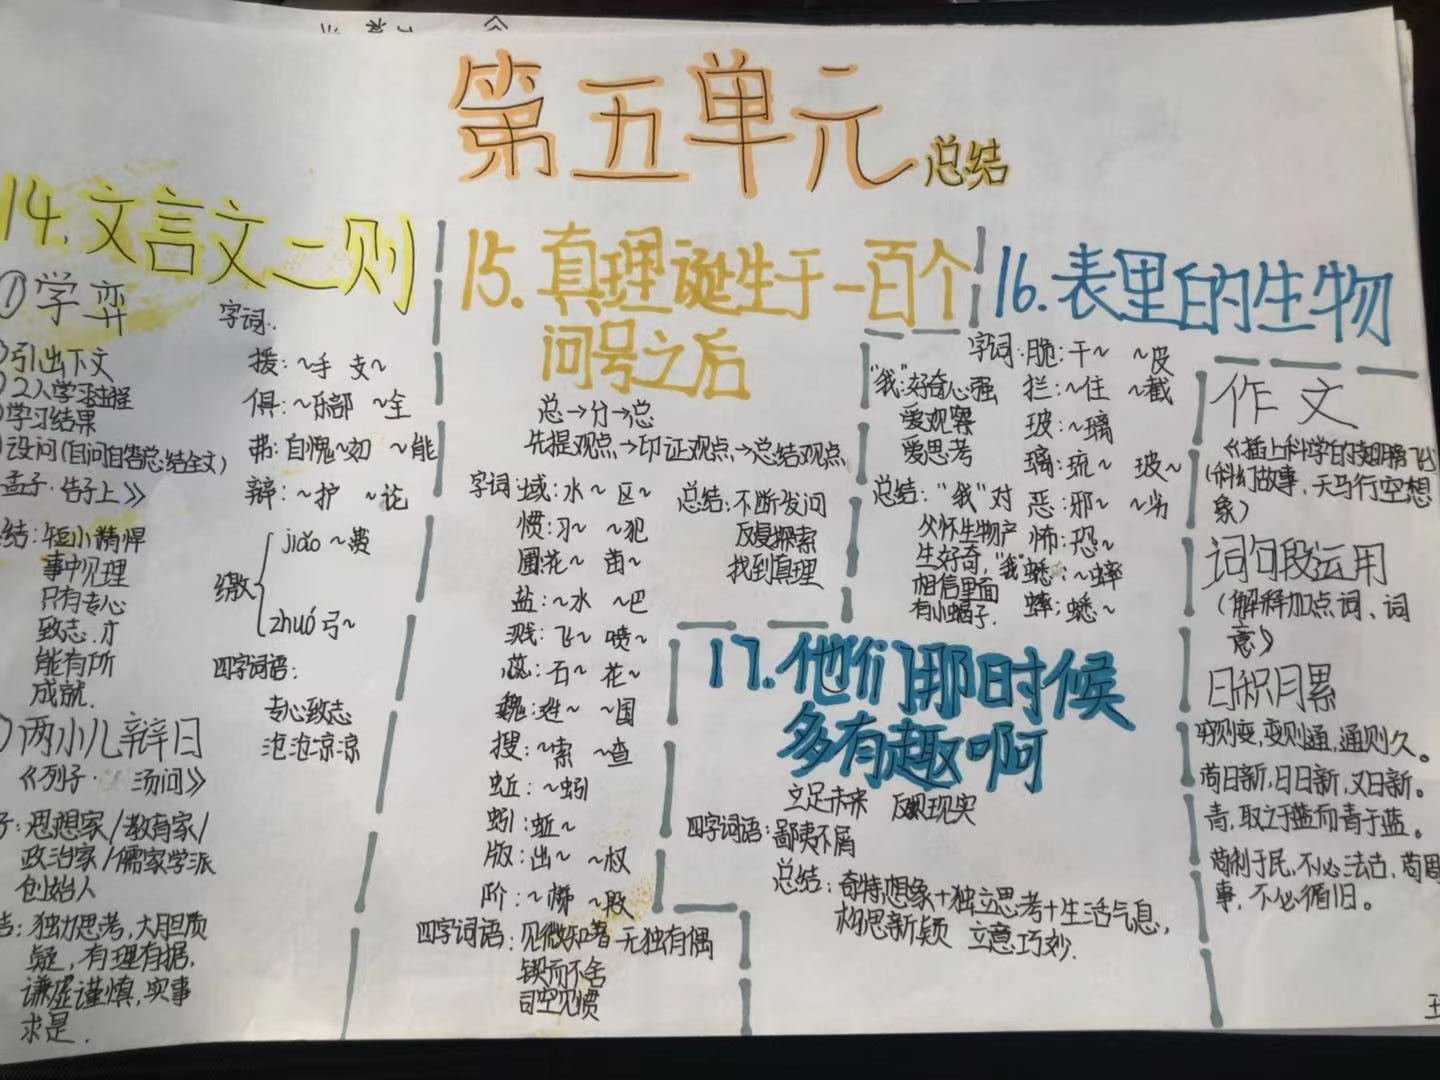 第五单元
总结
14.文言文二则
①学弈
引出下文
2人学习过程
学习结果
设问(自问自答总结全文)
孟子·告子上》
结:短小精悍
事中见理
只有专心
致志,才
能有所
成就.
两小儿辩日
《列子·汤问》
子:思想家/教育家/
政治家/儒家学派
创始人
结:独力思考,大胆质
疑,有理有据.
谦虚谨慎,实事
求是.
字词:
援:~手 支~
俱:~乐部 ~全
弗:自愧~如 ~能
辩:~护 ~论
缴
jiǎo ~费
zhuó 弓~
四字词语:
专心致志
沧沧凉凉
15.真理诞生于一百个
问号之后
总→分→总
先提观点→印证观点→总结观点
字词:域:水~ 区~
惯:习~ ~犯
圃:花~ 苗~
盐:~水 ~巴
溅:飞~ 喷~
蕊:石~ 花~
魏:姓~ ~国
搜:~索 ~查
蚯:~蚓
蚓:蚯~
版:出~ ~权
阶:~梯 ~段
四字词语:见微知著 无独有偶
锲而不舍
司空见惯
总结:不断发问
反复探索
找到真理
16.表里的生物
"我":好奇心强
爱观察
爱思考
总结:"我"对
父怀生物产
生好奇,"我"
相信里面
有小蝎子.
字词:脆:干~ ~皮
拦:~住 ~截
玻:~璃
璃:琉~ 玻~
恶:邪~ ~劣
怖:恐~
蟋:~蟀
蟀:蟋~
17.他们那时候
多有趣啊
立足未来 反映现实
四字词语:鄙夷不屑
总结:奇特想象+独立思考+生活气息,
构思新颖 立意巧妙.
作文
《插上科学的翅膀飞》
(科幻故事、天马行空想
象)
词句段运用
(解释加点词、词
意)
日积月累
穷则变,变则通,通则久。
苟日新,日日新,又日新。
青,取之于蓝而青于蓝。
苟利于民,不必法古,苟周
事,不必循旧。